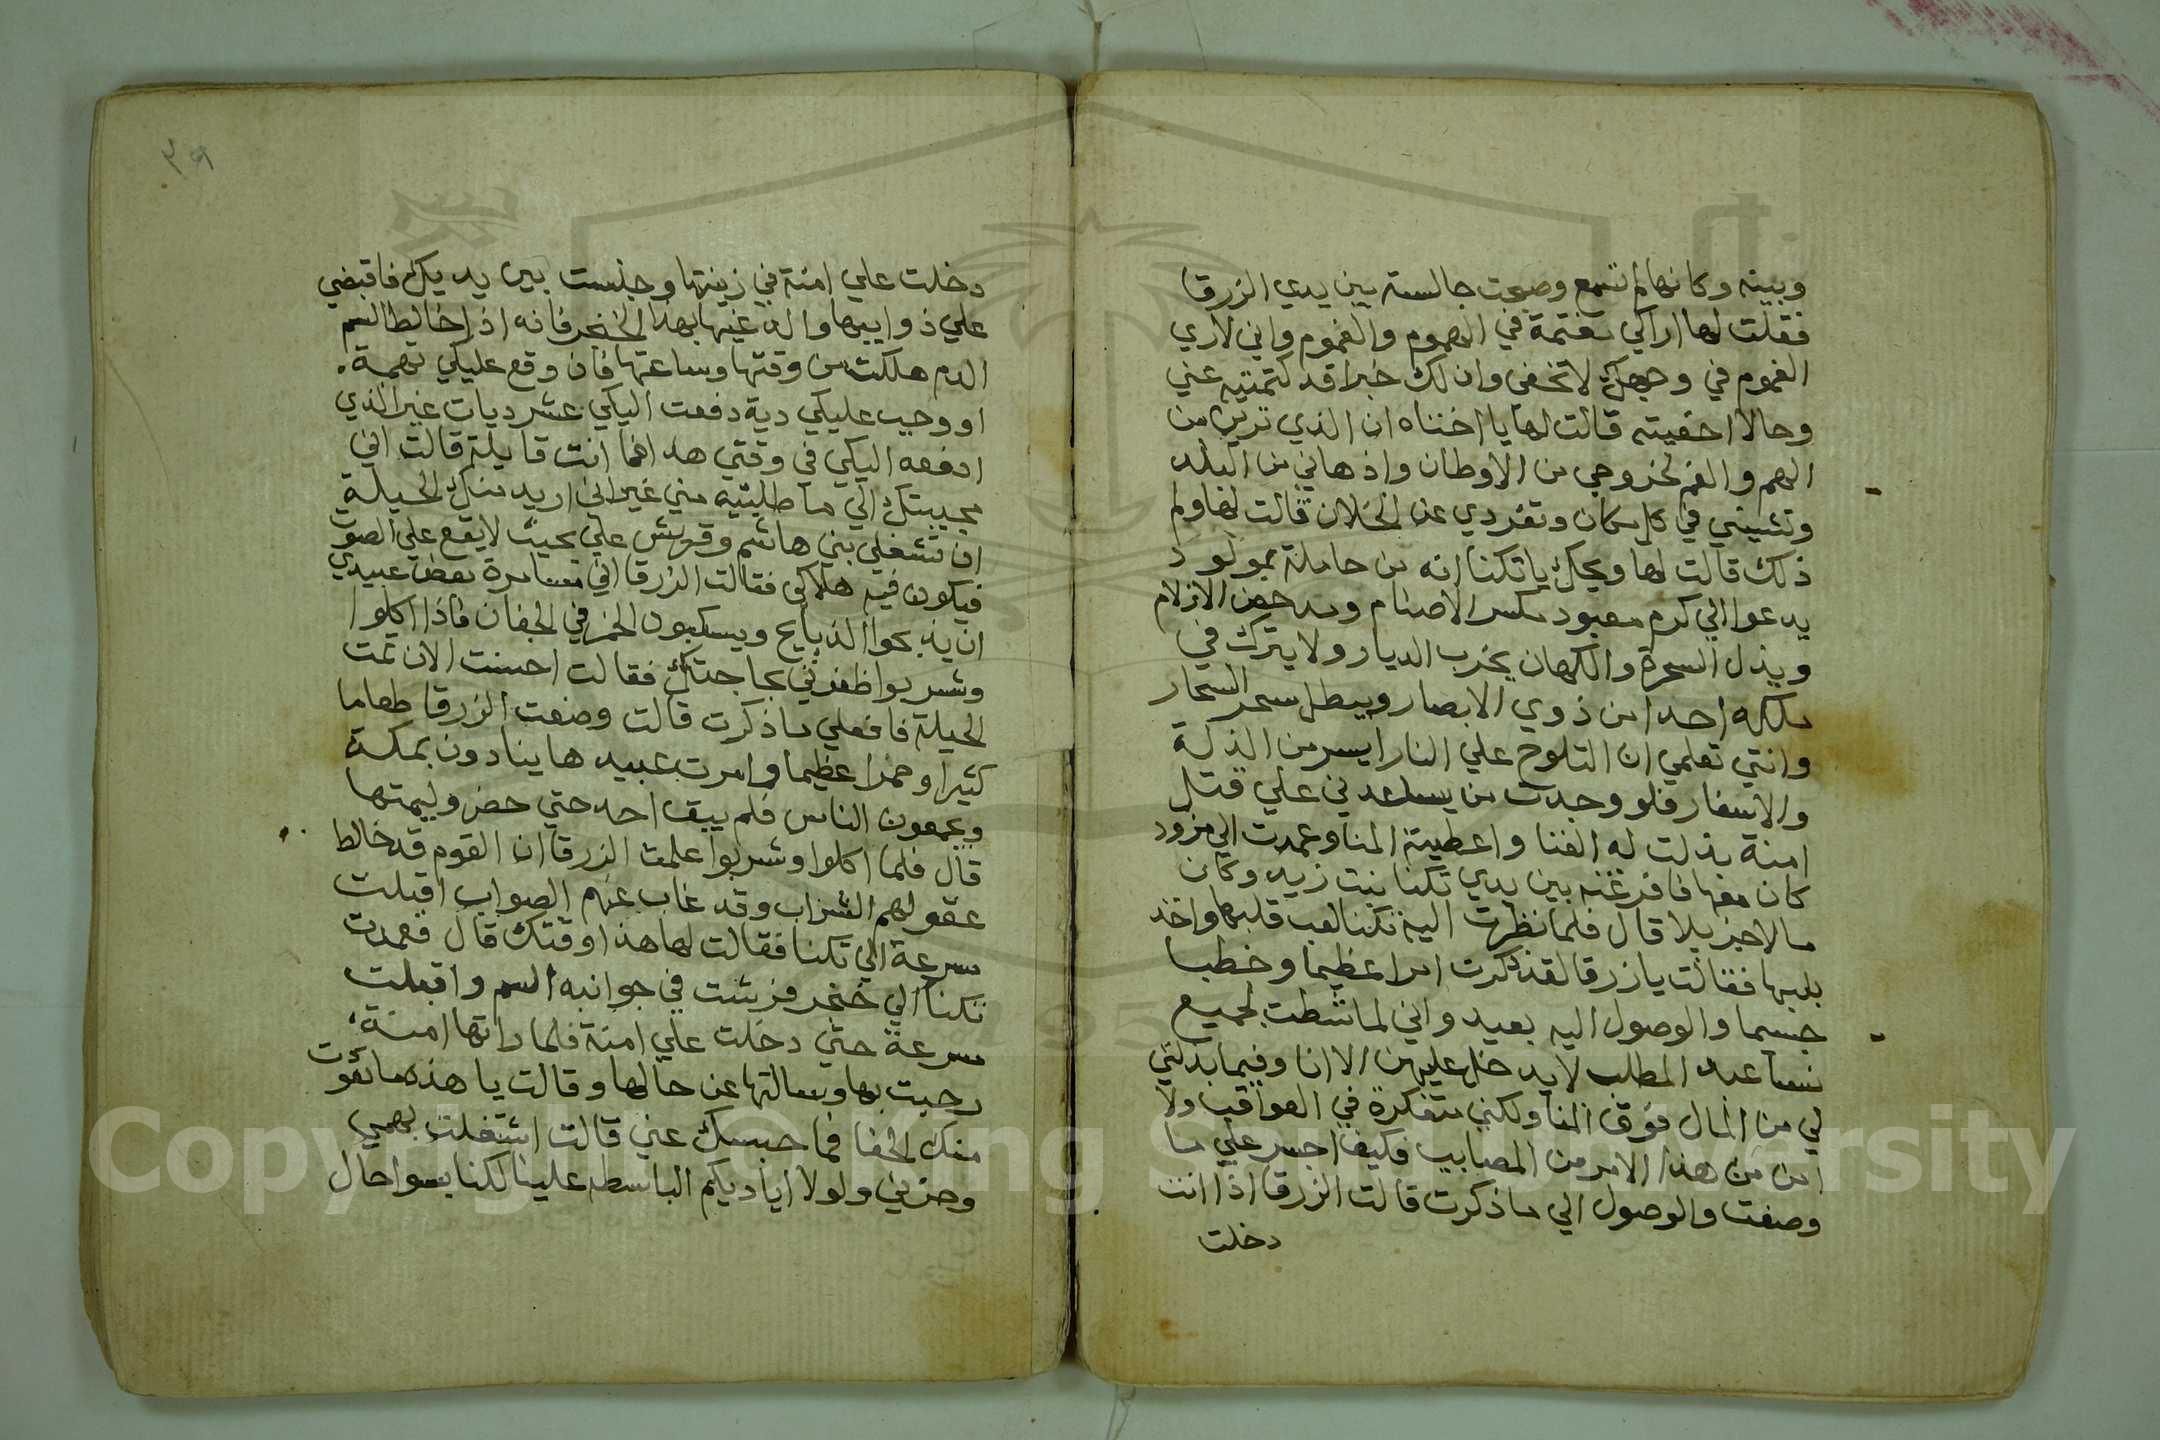 وبينه وكانها لم تسمع وصبحت جالسة بين يدي الزرقا
فقلت لها اراكي مغتمة في الهموم والغموم واني لاري
الغموم في وجهك لا تخفى وان لك خبرا قد كتمتيه عني
وحالا اخفيته قالت لها يا اختاه ان الذي ترين من
الهم والغم لخروجي من الاوطان واذهاني من البلد
وتشيتني في كل مكان وتفردي عن الخلان قالت لها ولم
ذلك قالت لها ويحك يا تكنا انه من حاملة بمولود
يدعوا الي كرم معبود مكسر الاصنام ومدحض الازلام
ويذل السحرة والكهان يخرب الديار ولا يترك في
ملكه احدا من ذوي الابصار ويبطل سحر السحار
وانتي تعلمي ان التلوح علي النار ايسر من الذلة
والاسفار فلو وجدت من يساعدني علي قتل
امنة بذلت له الغنا واعطيته المنا وعمدت الي مزود
كان معها فافرغته بين يدي تكنا بنت زيد وكان
مالا جزيلا قال فلما نظرت اليه تكنا لعب قلبها واخذ
بلبها فقالت يا زرقا لقد ذكرت امرا عظيما وخطبا
جسيما والوصول اليه بعيد واني لماشطت لجميع
نسا عبد المطلب لا يدخل عليهن الا انا وفيما بذلتي
لي من المال فوق المنا ولكني متفكرة في العواقب ولا
امن من هذا الامر من المصايب فكيف اجسر علي ما
وصفت والوصول الي ما ذكرت قالت الزرقا اذا انت
دخلت
٣٩
دخلت علي امنة في زينتها وجلست بين يديك فاقبضي
علي ذوايبها والدغيها بهذا الخنجر فانه اذا خالط السم
الدم هلكت من وقتها وساعتها فان وقع عليكي تهمة
او وجب عليكي دية دفعت اليكي عشر ديات غير الذي
ادفعه اليكي في وقتي هدا فما انت قايلة قالت اني
مجيبتك الي ما طلبتيه مني غير اني اريد منك الحيلة
ان تشغلي بني هاشم وقريش علي بحيث لا يقع علي الصوت
فيكون فيه هلاكي فقالت الزرقا اني مسامرة بعض عبيدي
ان يذبحوا الذبايح ويسكبون الخمر في الجفان فاذا اكلوا
وشربوا ظفرتي بحاجتك فقالت احسنت الان تمت
الحيلة فافعلي ما ذكرت قالت وصنعت الزرقا طعاما
كثيرا وخمرا عظيما وامرت عبيدها ينادون بمكة
ويجمعون الناس فلم يبقا احد حتي حضر وليمتها
قال فلما اكلوا وشربوا علمت الزرقا ان القوم قد خالط
عقولهم الشراب وقد غاب عنهم الصواب اقبلت
مسرعة الي تكنا فقالت لها هذا وقتك قال فعمدت
تكنا الي خنجر فرشت في جوانبه السم واقبلت
مسرعة حتي دخلت علي امنة فلما راتها امنة
رحبت بها وسالتها عن حالها وقالت يا هذه ما تعودت
منك الجفا فما حبسك عني قالت اشتغلت بهمي
وحزني ولولا اياديكم الباسطه علينا لكنا بسوا حال
Copyright © King Saud University